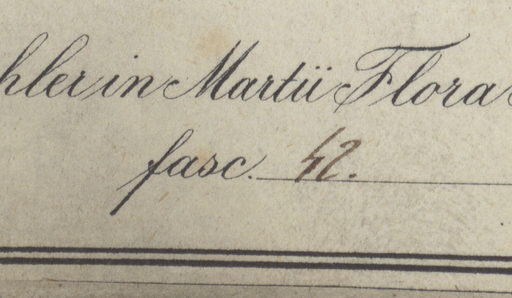 hler in Martii Flora
fasc. 42.